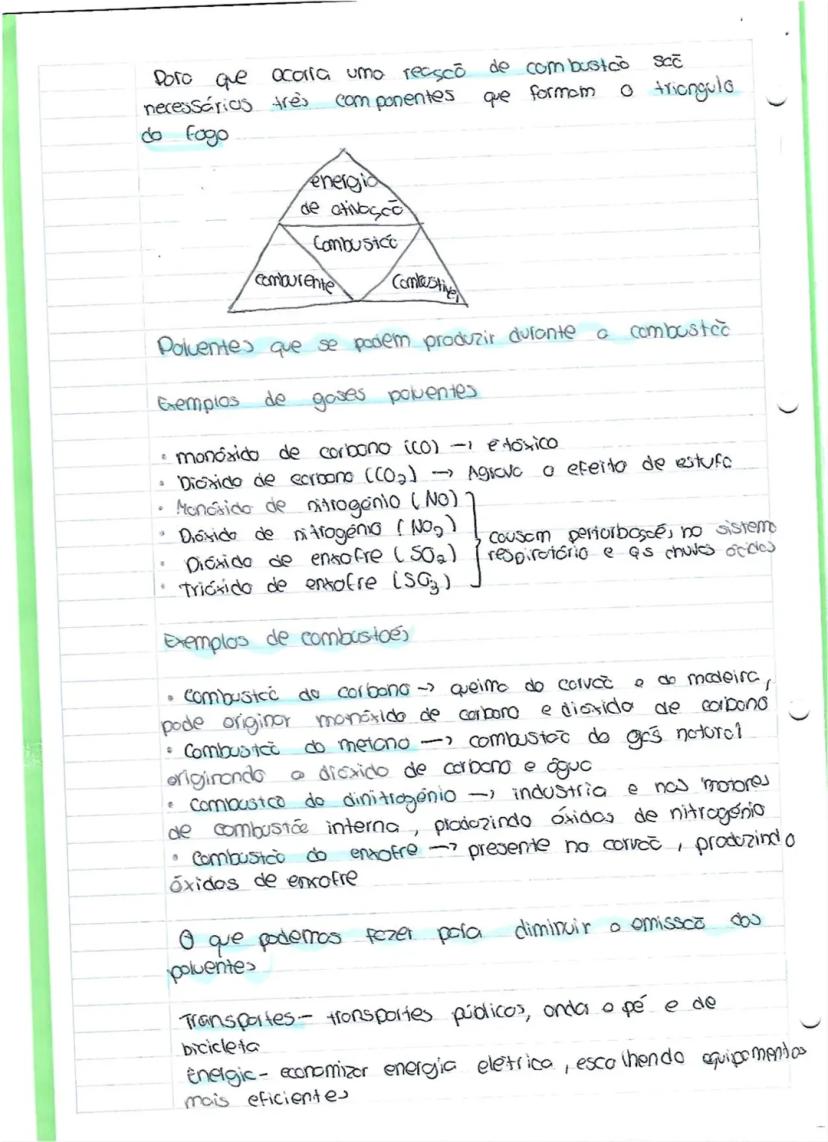 Para que ocorra uma reação de combustão são
necessárias três componentes que formam o triangulo
do fogo
energia
de ativação
Combustão
comburente
Combustivel
Poluentes que se podem produzir durante a combustão
Exemplos de gases poluentes
• monóxido de carbono (CO) → é tóxico
• Dióxido de carbono (CO₂) → Agrava o efeito de estufa
• Monóxido de nitrogénio (NO)
• Dióxido de nitrogénio (NO₂)
• Dióxido de enxofre (SO₂)
• Trióxido de enxofre (SO₃)
causam perturbações no sistema
respiratório e as chuvas ácidas
Exemplos de combustões
• combustão do carbono → queima do carvão e da madeira,
pode originar monóxido de carbono e dioxido de carbono
• Combustão do metano → combustão do gás natural
originando o dióxido de carbono e água
• combustão do dinitrogénio → industria e nos motores
de combustão interna, produzindo óxidos de nitrogénio
• Combustão do enxofre → presente no carvão, produzindo
óxidos de enxofre
O que podemos fazer para diminuir a emissão dos
poluentes
Transportes - transportes públicos, anda a pé e de
bicicleta
Energia - economizar energia elétrica, escolhendo equipamentos
mais eficientes